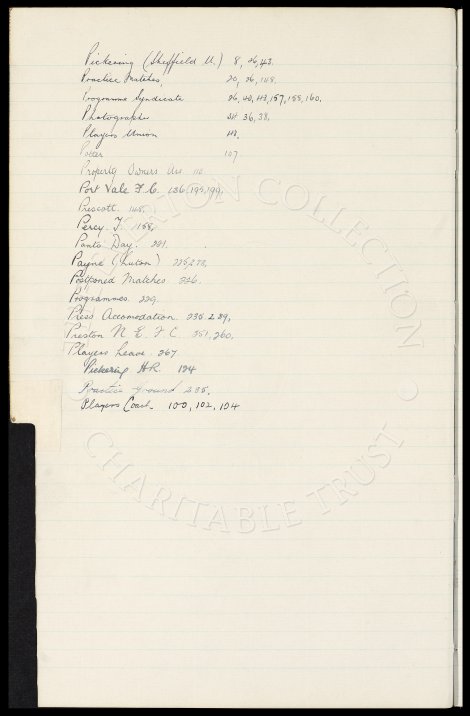 Pickering (Sheffield U.) 8, 26, 43.
Practice Matches, 20, 26, 148.
Programme Syndicate 26, 42, 43, 157, 159, 160.
Photographs 24 36, 38.
Players Union 43.
Potter 107
Property Owners Ass. 110.
Port Vale F.C. 136, 195, 199,
Prescott. 148.
Percy. J. 158.
Ponto Day. 221.
Payne (Luton) 225, 273,
Postponed Matches. 226.
Programmes. 229.
Press Accomodation. 235. 289,
Preston N. E. F. C. 251, 260.
Players Leave. 267
Pickering H.R. 124
Practice ground 235.
Players Coach. 100, 102, 124
EVERTON COLLECTION
CHARITABLE TRUST